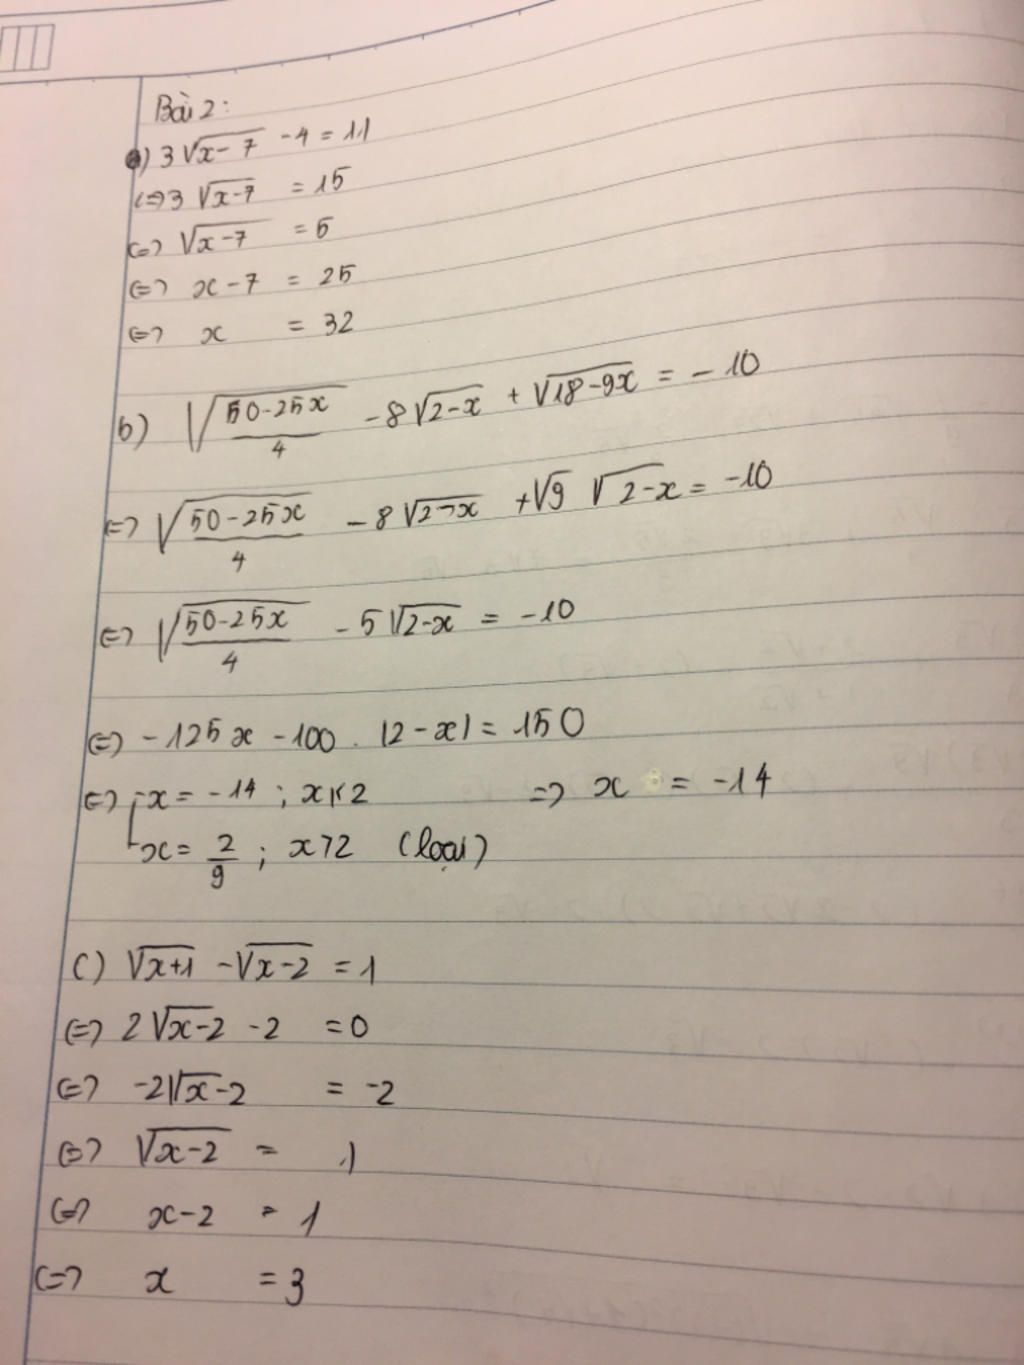 Bài 2:
a) 3√(x-7) - 4 = 11
<=> 3√(x-7) = 15
<=> √(x-7) = 5
<=> x-7 = 25
<=> x = 32
b) √((50-25x)/4) - 8√(2-x) + √(18-9x) = -10
<=> √((50-25x)/4) - 8√(2-x) + √9 √(2-x) = -10
<=> √((50-25x)/4) - 5√(2-x) = -10
<=> -125x - 100 . |2-x| = 150
<=> [x = -14 ; x≤2 => x = -14
x = 2/9 ; x>2 (loại)
c) √(x+1) - √(x-2) = 1
<=> 2√(x-2) - 2 = 0
<=> -2√(x-2) = -2
<=> √(x-2) = 1
<=> x-2 = 1
<=> x = 3